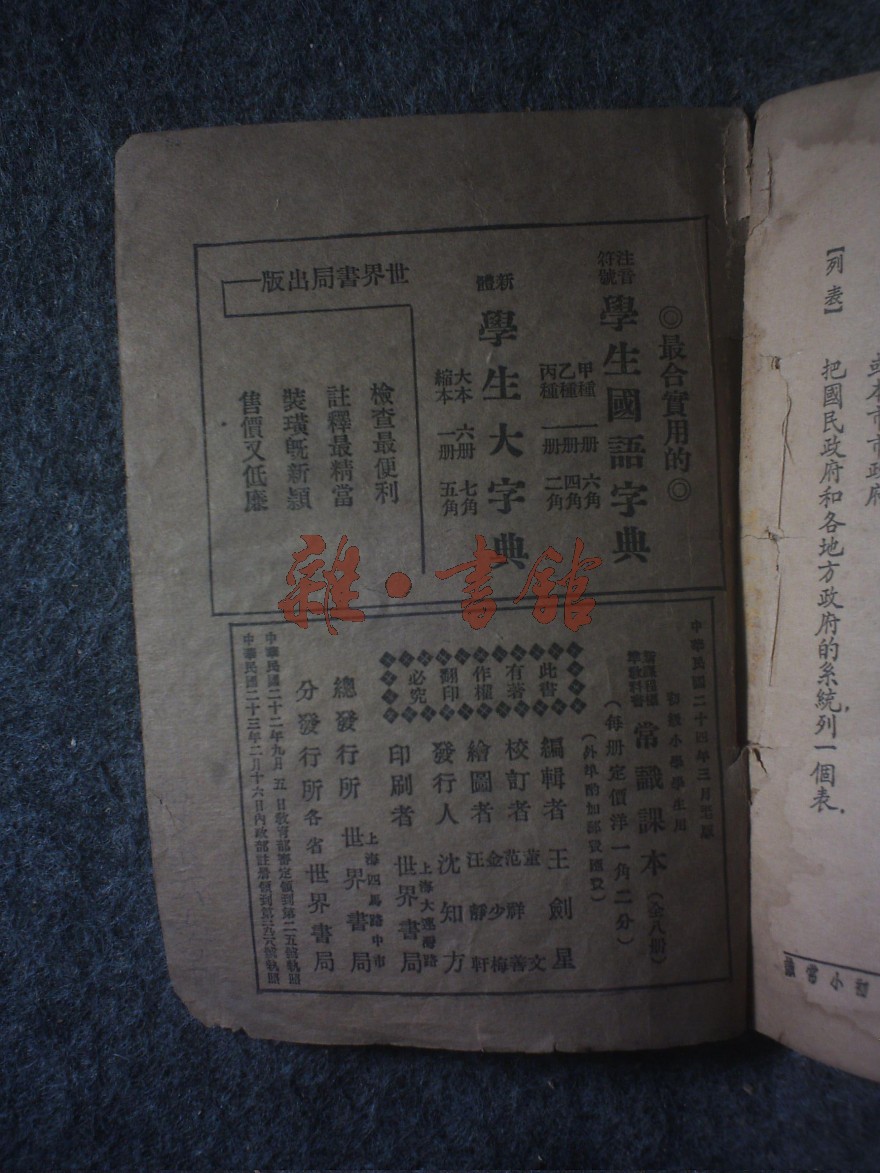 ◎最合實用的◎
注音符號
學生國語字典
甲種 一册 六角
乙種 一册 四角
丙種 一册 二角
新體
學生大字典
大本 六册 七角
縮本 一册 五角
世界書局出版
檢查最便利
註釋最精當
裝璜旣新穎
售價又低廉
中華民國二十四年三月
初級小學學生用
常識課本(全八册)
(每册定價洋一角二分)
(外埠酌加郵費匯費)
此書有著作權翻印必究
編輯者 王劍星
校訂者 董文 范祥善
繪圖者 金少梅 汪靜軒
發行人 沈知方
印刷者 上海大連灣路 世界書局
總發行所 上海四馬路中市 世界書局
分發行所 各省世界書局
中華民國二十二年九月五日教育部審定領到第二五號執照
中華民國二十三年二月十六日內政部註册領到第三九六號執照
並本市市政府
【列表】 把國民政府和各地方政府的系統,列一個表.
初小常識
雜·書館